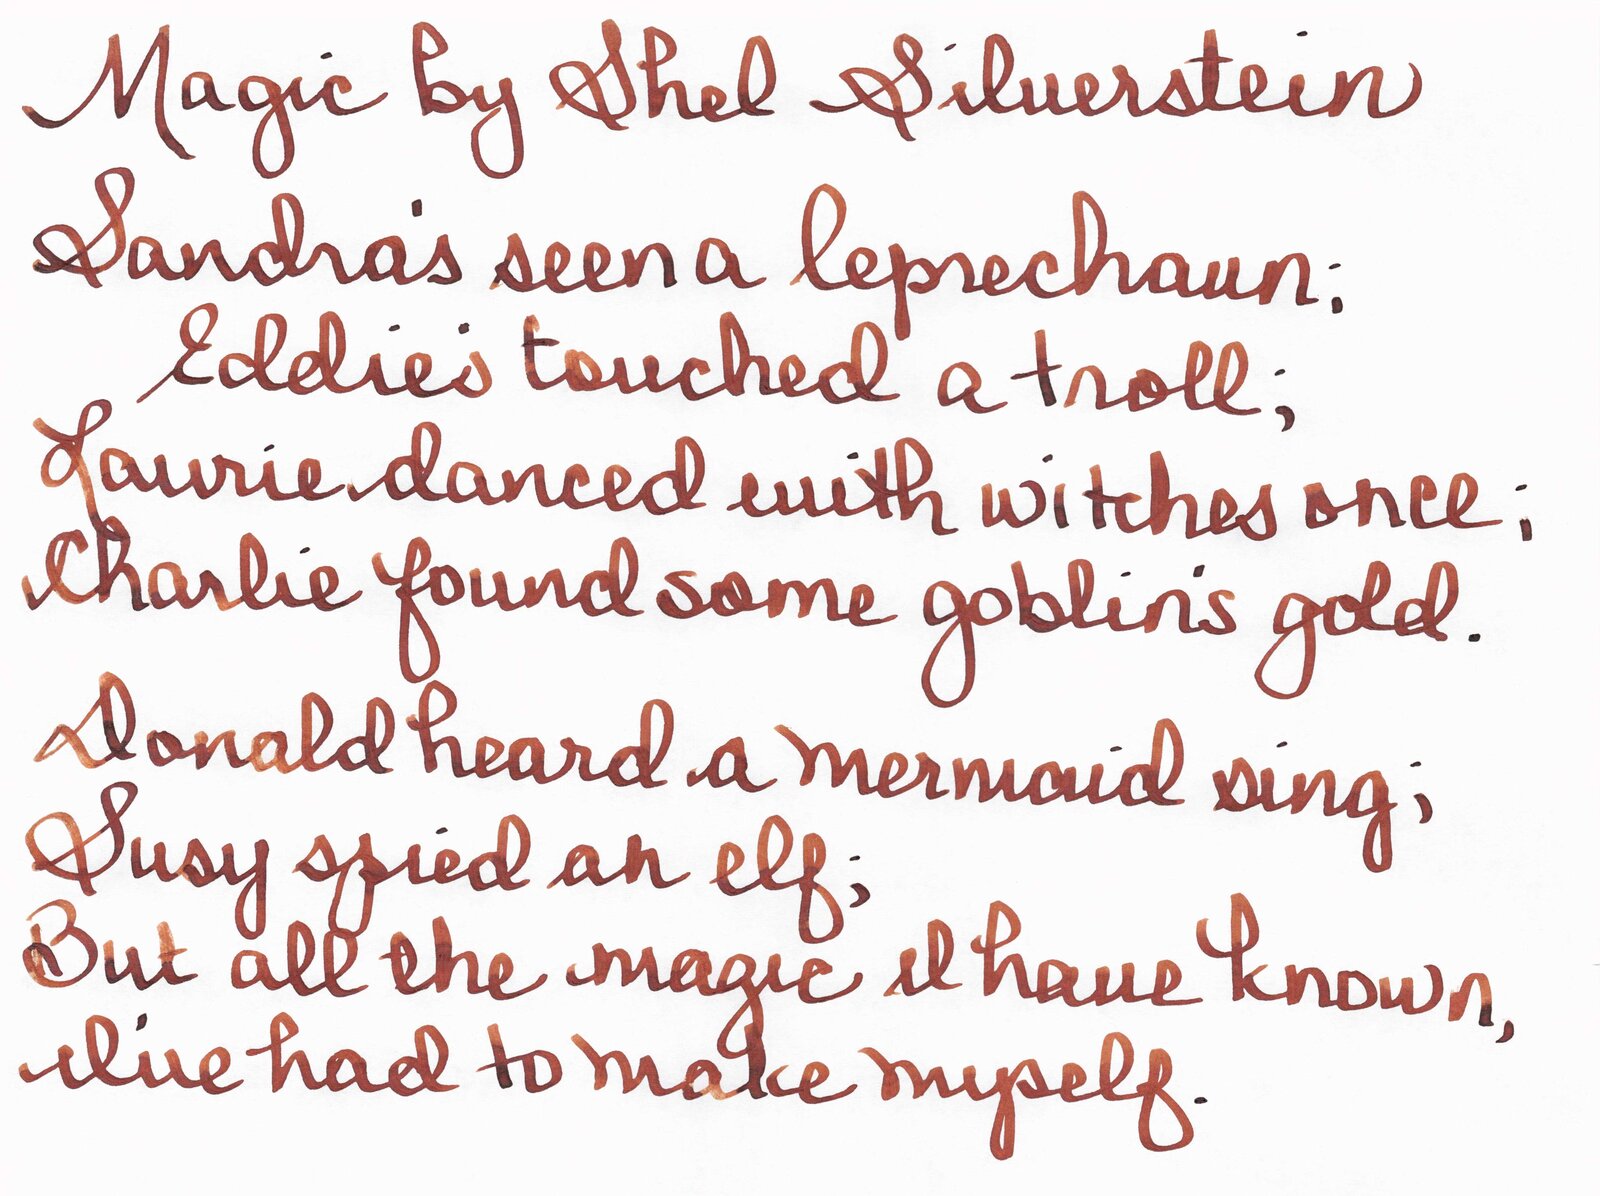 Magic by Shel Silverstein
Sandra's seen a leprechaun;
Eddie's touched a troll;
Laurie danced with witches once;
Charlie found some goblin's gold.
Donald heard a mermaid sing;
Susy spied an elf;
But all the magic I have known,
I've had to make myself.